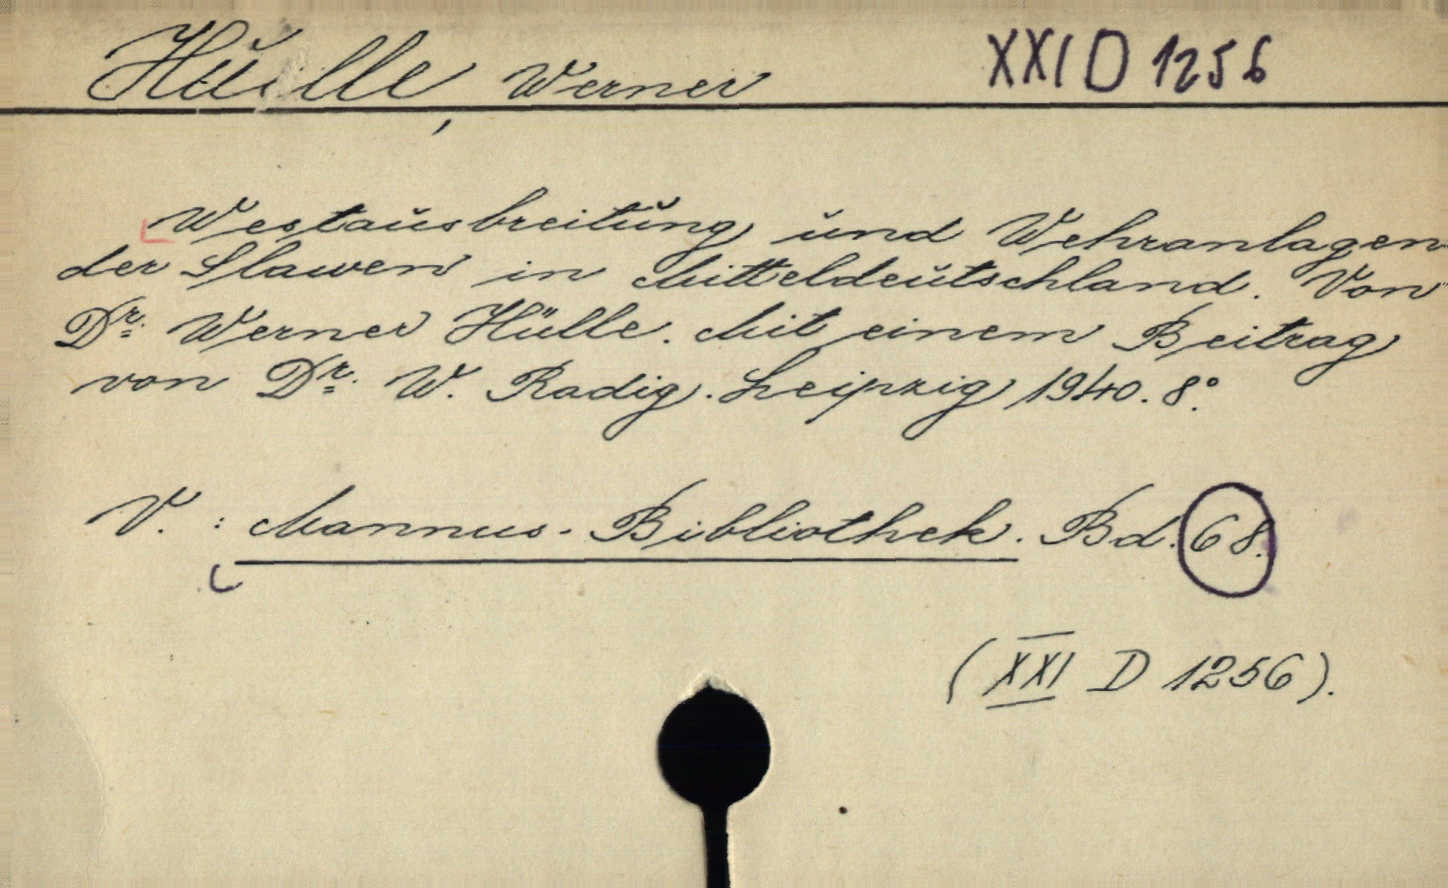 Hülle, Werner XXI D 1256
Westausbreitung und Wehranlagen
der Slawen in Mitteldeutschland. Von
Dr. Werner Hülle. Mit einem Beitrag
von Dr. W. Radig. Leipzig 1940. 8°.
V. : Mannus-Bibliothek. Bd. 68.
(XXI D 1256).